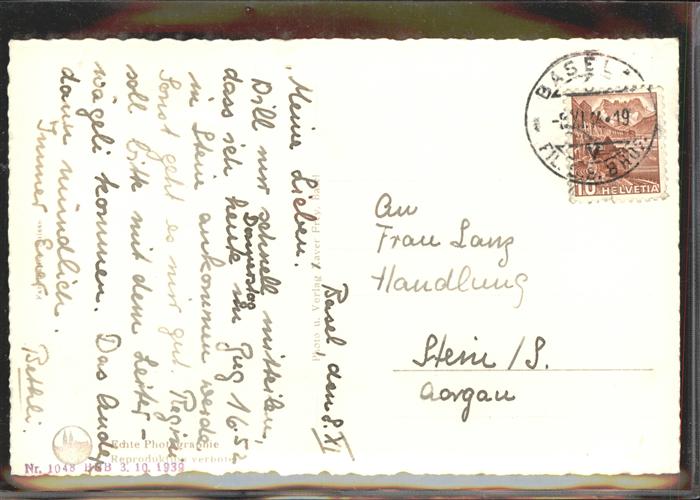 Basel, den 8. XI
Meine Lieben.
Will nur schnell mitteilen,
dass ich heute
Donnerstag
im Zug 16.52
in Stein ankommen werde.
Sonst geht es mir gut.
soll bitte mit dem Leiter-
wägeli kommen. Das Andere
dann mündlich.
Immer Euer
Bethli.
An
Frau Lang
Handlung
Stein /S.
Aargau
BASEL
10 HELVETIA
Photo u. Verlag Xaver
Echte Photographie
Reproduktion verboten
Nr. 1048 BRB 3. 10. 1939